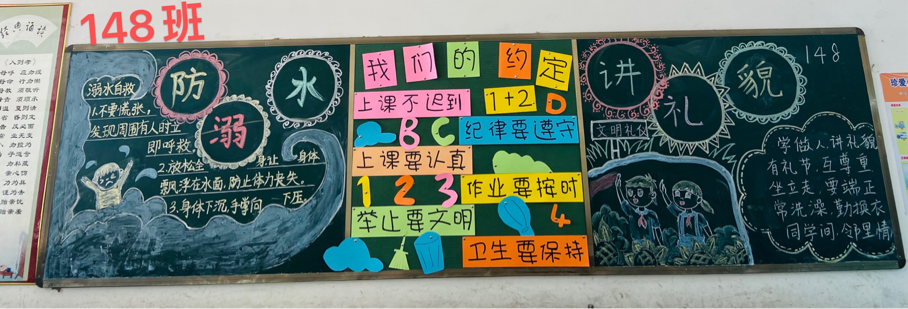 148班
防
溺
水
溺水自救
1.不要慌张,
发现周围有人时立
即呼救
2.放松全身,让身体
飘浮在水面,防止体力丧失.
3.身体下沉,手掌向下压.
我们的约定
上课不迟到
1+2
D
B C
纪律要遵守
上课要认真
1 2 3
作业要按时
举止要文明
4
卫生要保持
讲
礼
貌
148
文明礼仪
学做人.讲礼貌
有礼节.互尊重
坐立走.要端正
常洗澡.勤换衣
同学间.邻里情
入则孝